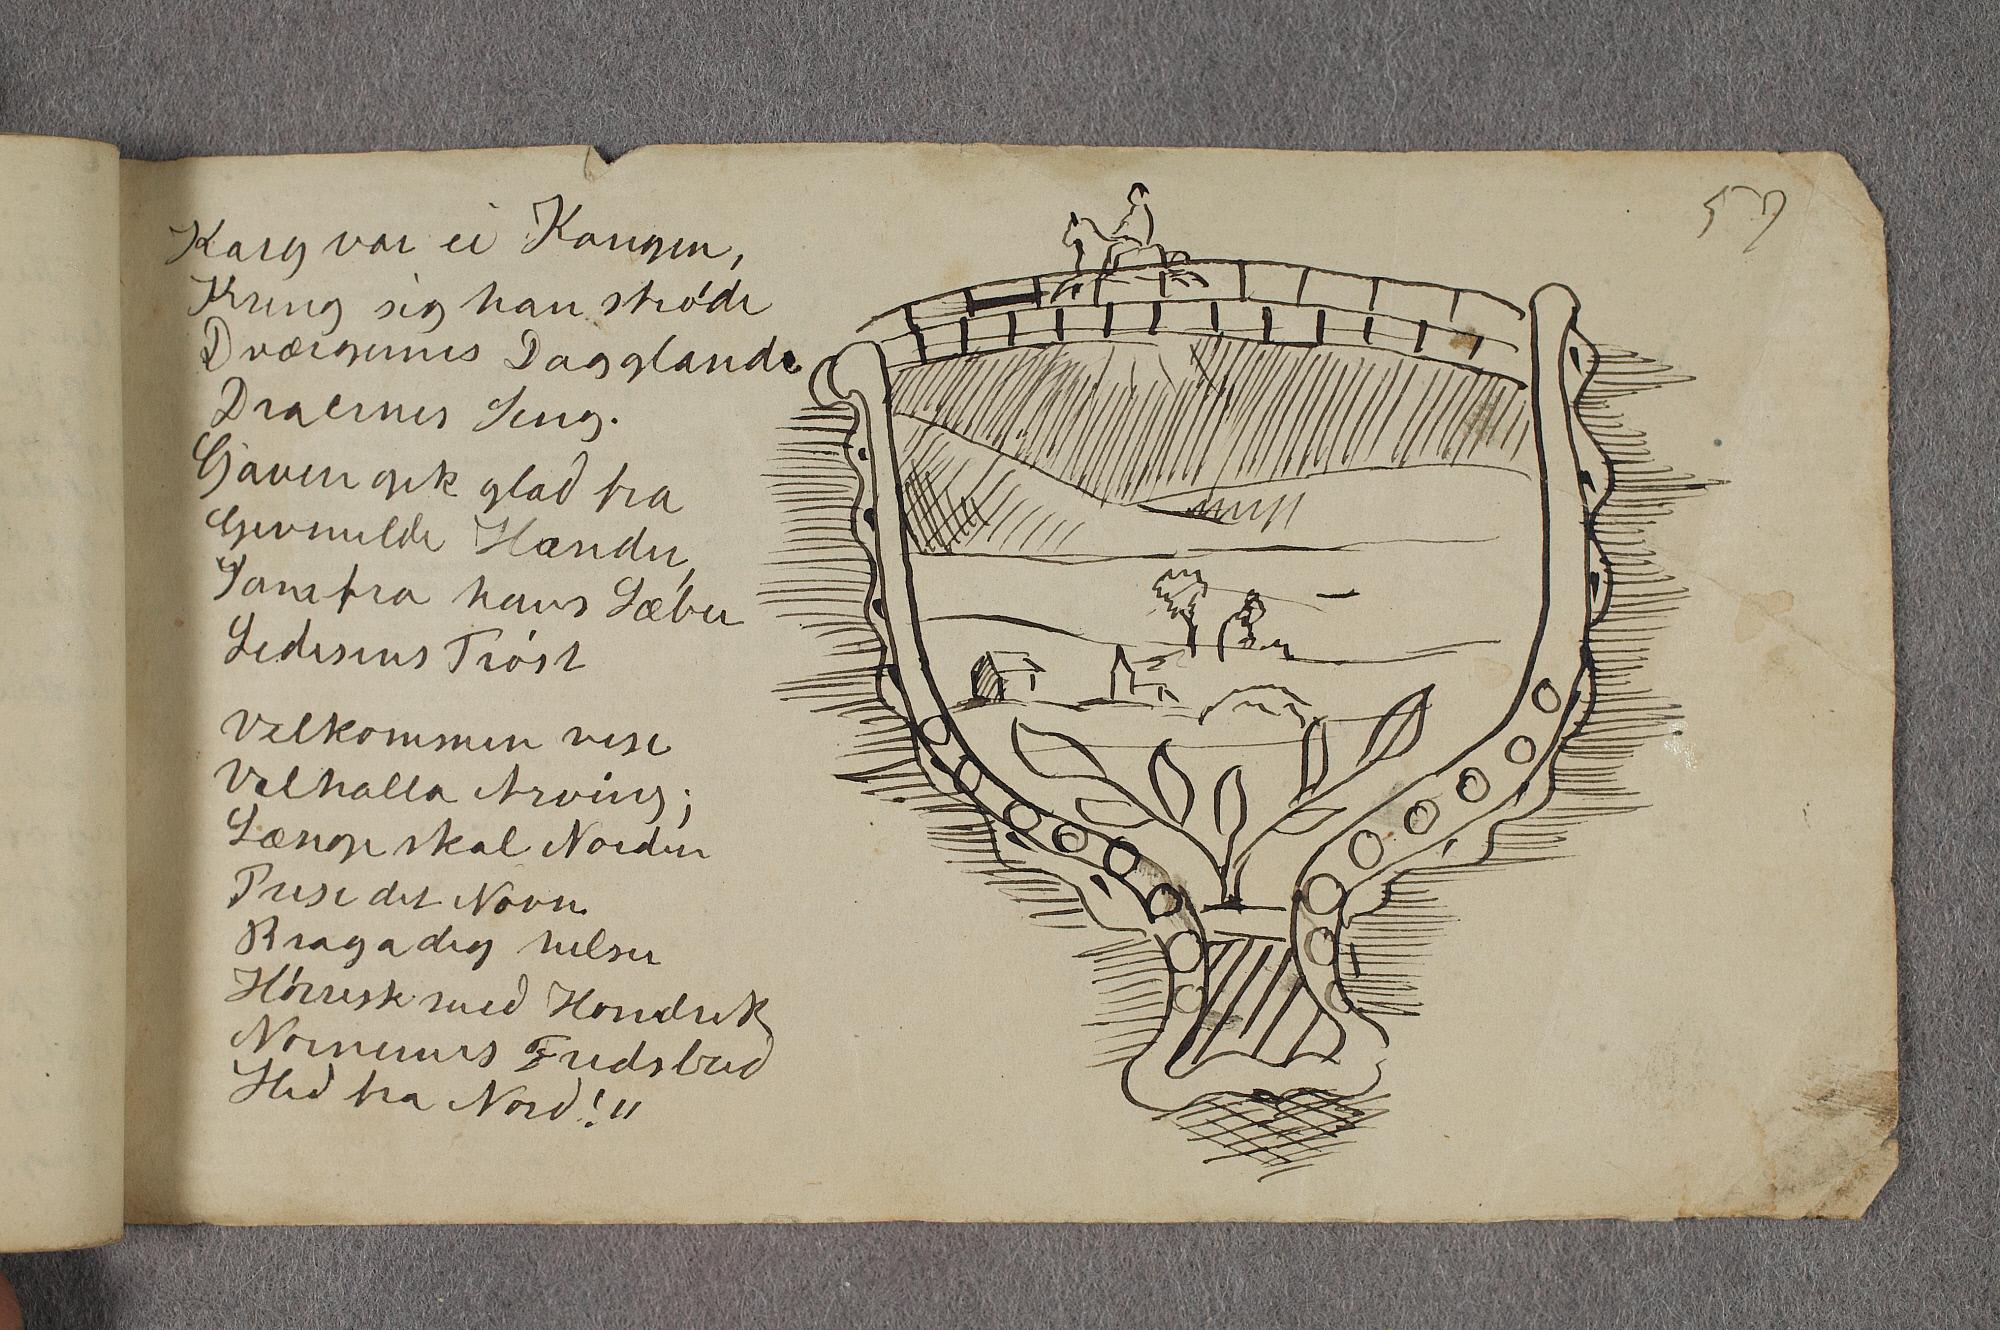 57
Karg var ei Kongen,
Kring sig han strøde
Dværgenes Dagglands
Dragernes Seng.
Gaven gik glad fra
Gavmilde Hænder,
Som fra hans Læber
Lidesens Trøst
Velkommen vise
Valhalla Arving;
Længe skal Norden
Prise dit Navn.
Braga dig hilser
Høiresk med Handrek
Nornernes Fredsbud
Hid fra Nord!"